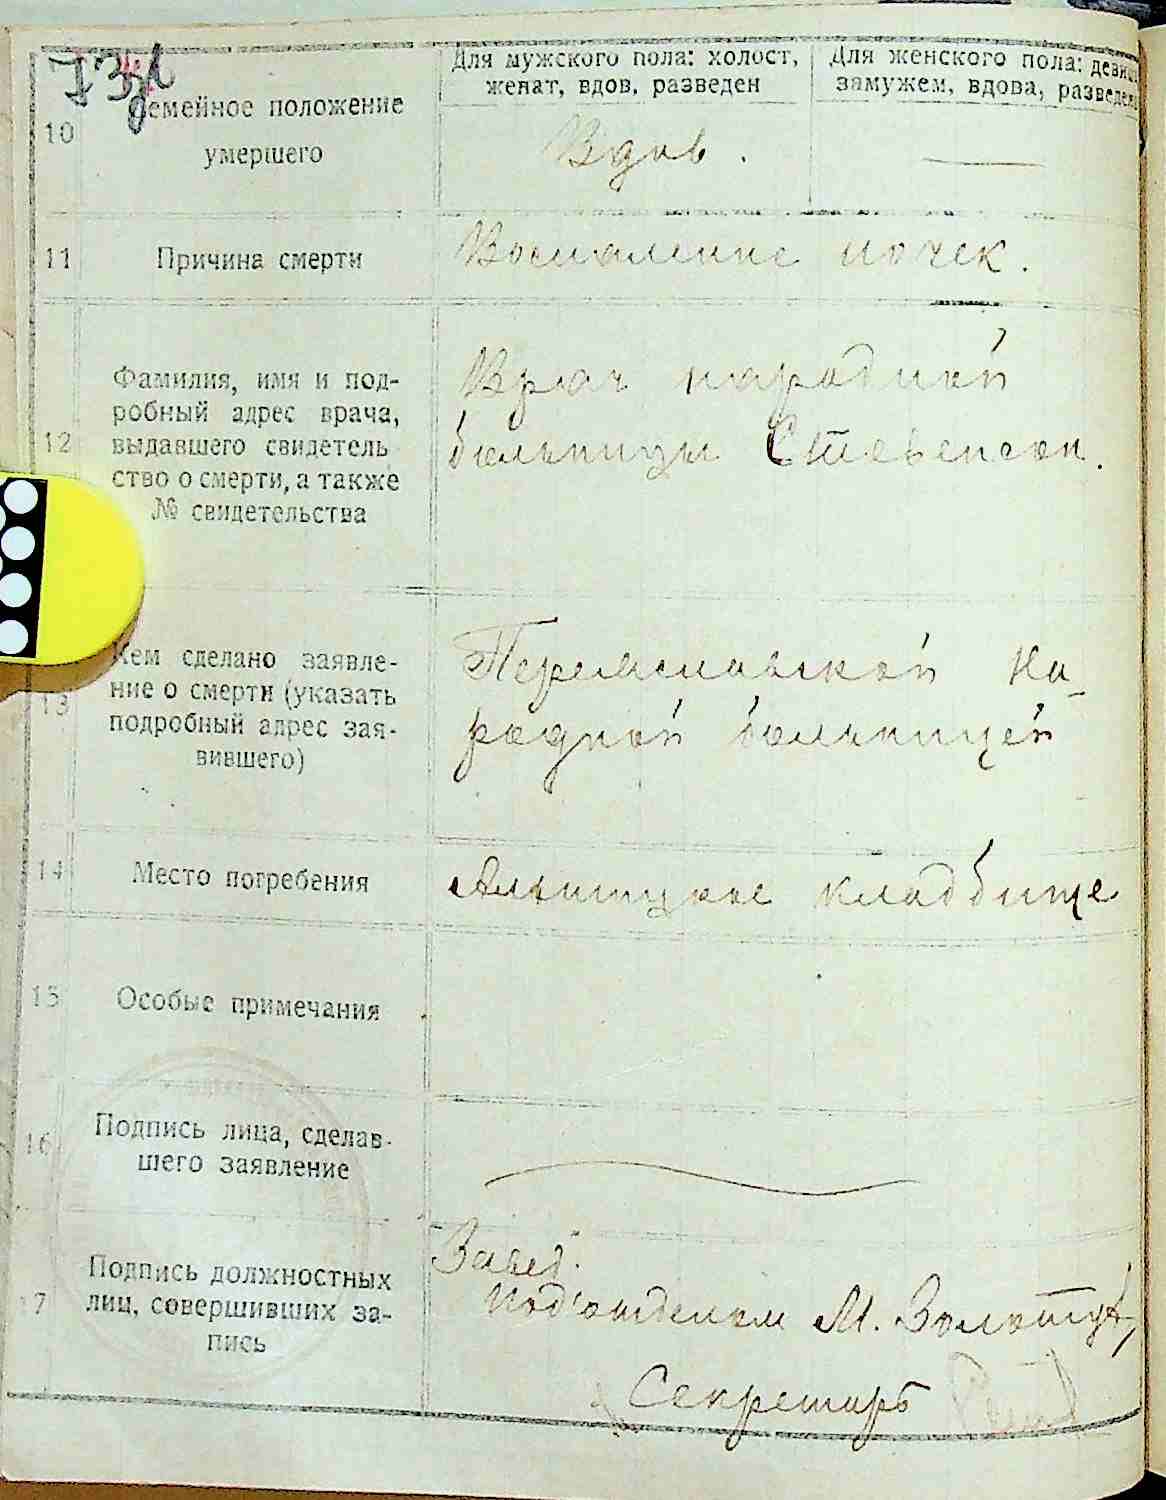 Для мужского пола: холост,
женат, вдов, разведен
Для женского пола: девица,
замужем, вдова, разведена
10
Семейное положение
умершего
Вдов.
11
Причина смерти
Воспаление почек.
12
Фамилия, имя и под-
робный адрес врача,
выдавшего свидетель
ство о смерти, а также
№ свидетельства
Врач народной
больницы Стевенсон.
13
Кем сделано заявле-
ние о смерти (указать
подробный адрес зая-
вившего)
Переяславской На-
родной больницей
14
Место погребения
Альтицкое кладбище
15
Особые примечания
16
Подпись лица, сделав-
шего заявление
17
Подпись должностных
лиц, совершивших за-
пись
Завед.
под'отделом М.
Секретарь